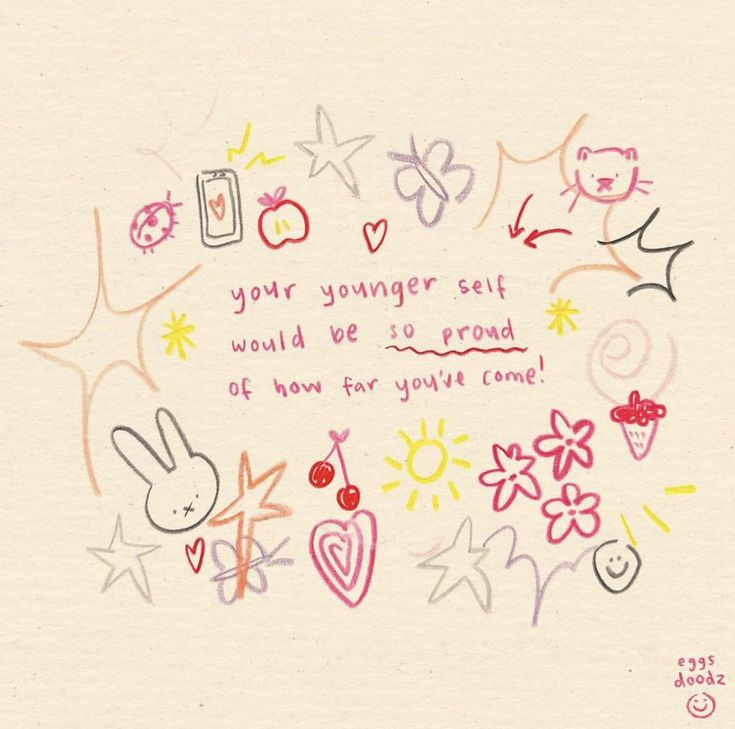 your younger self
would be so proud
of how far you've come!
eggs
doodz